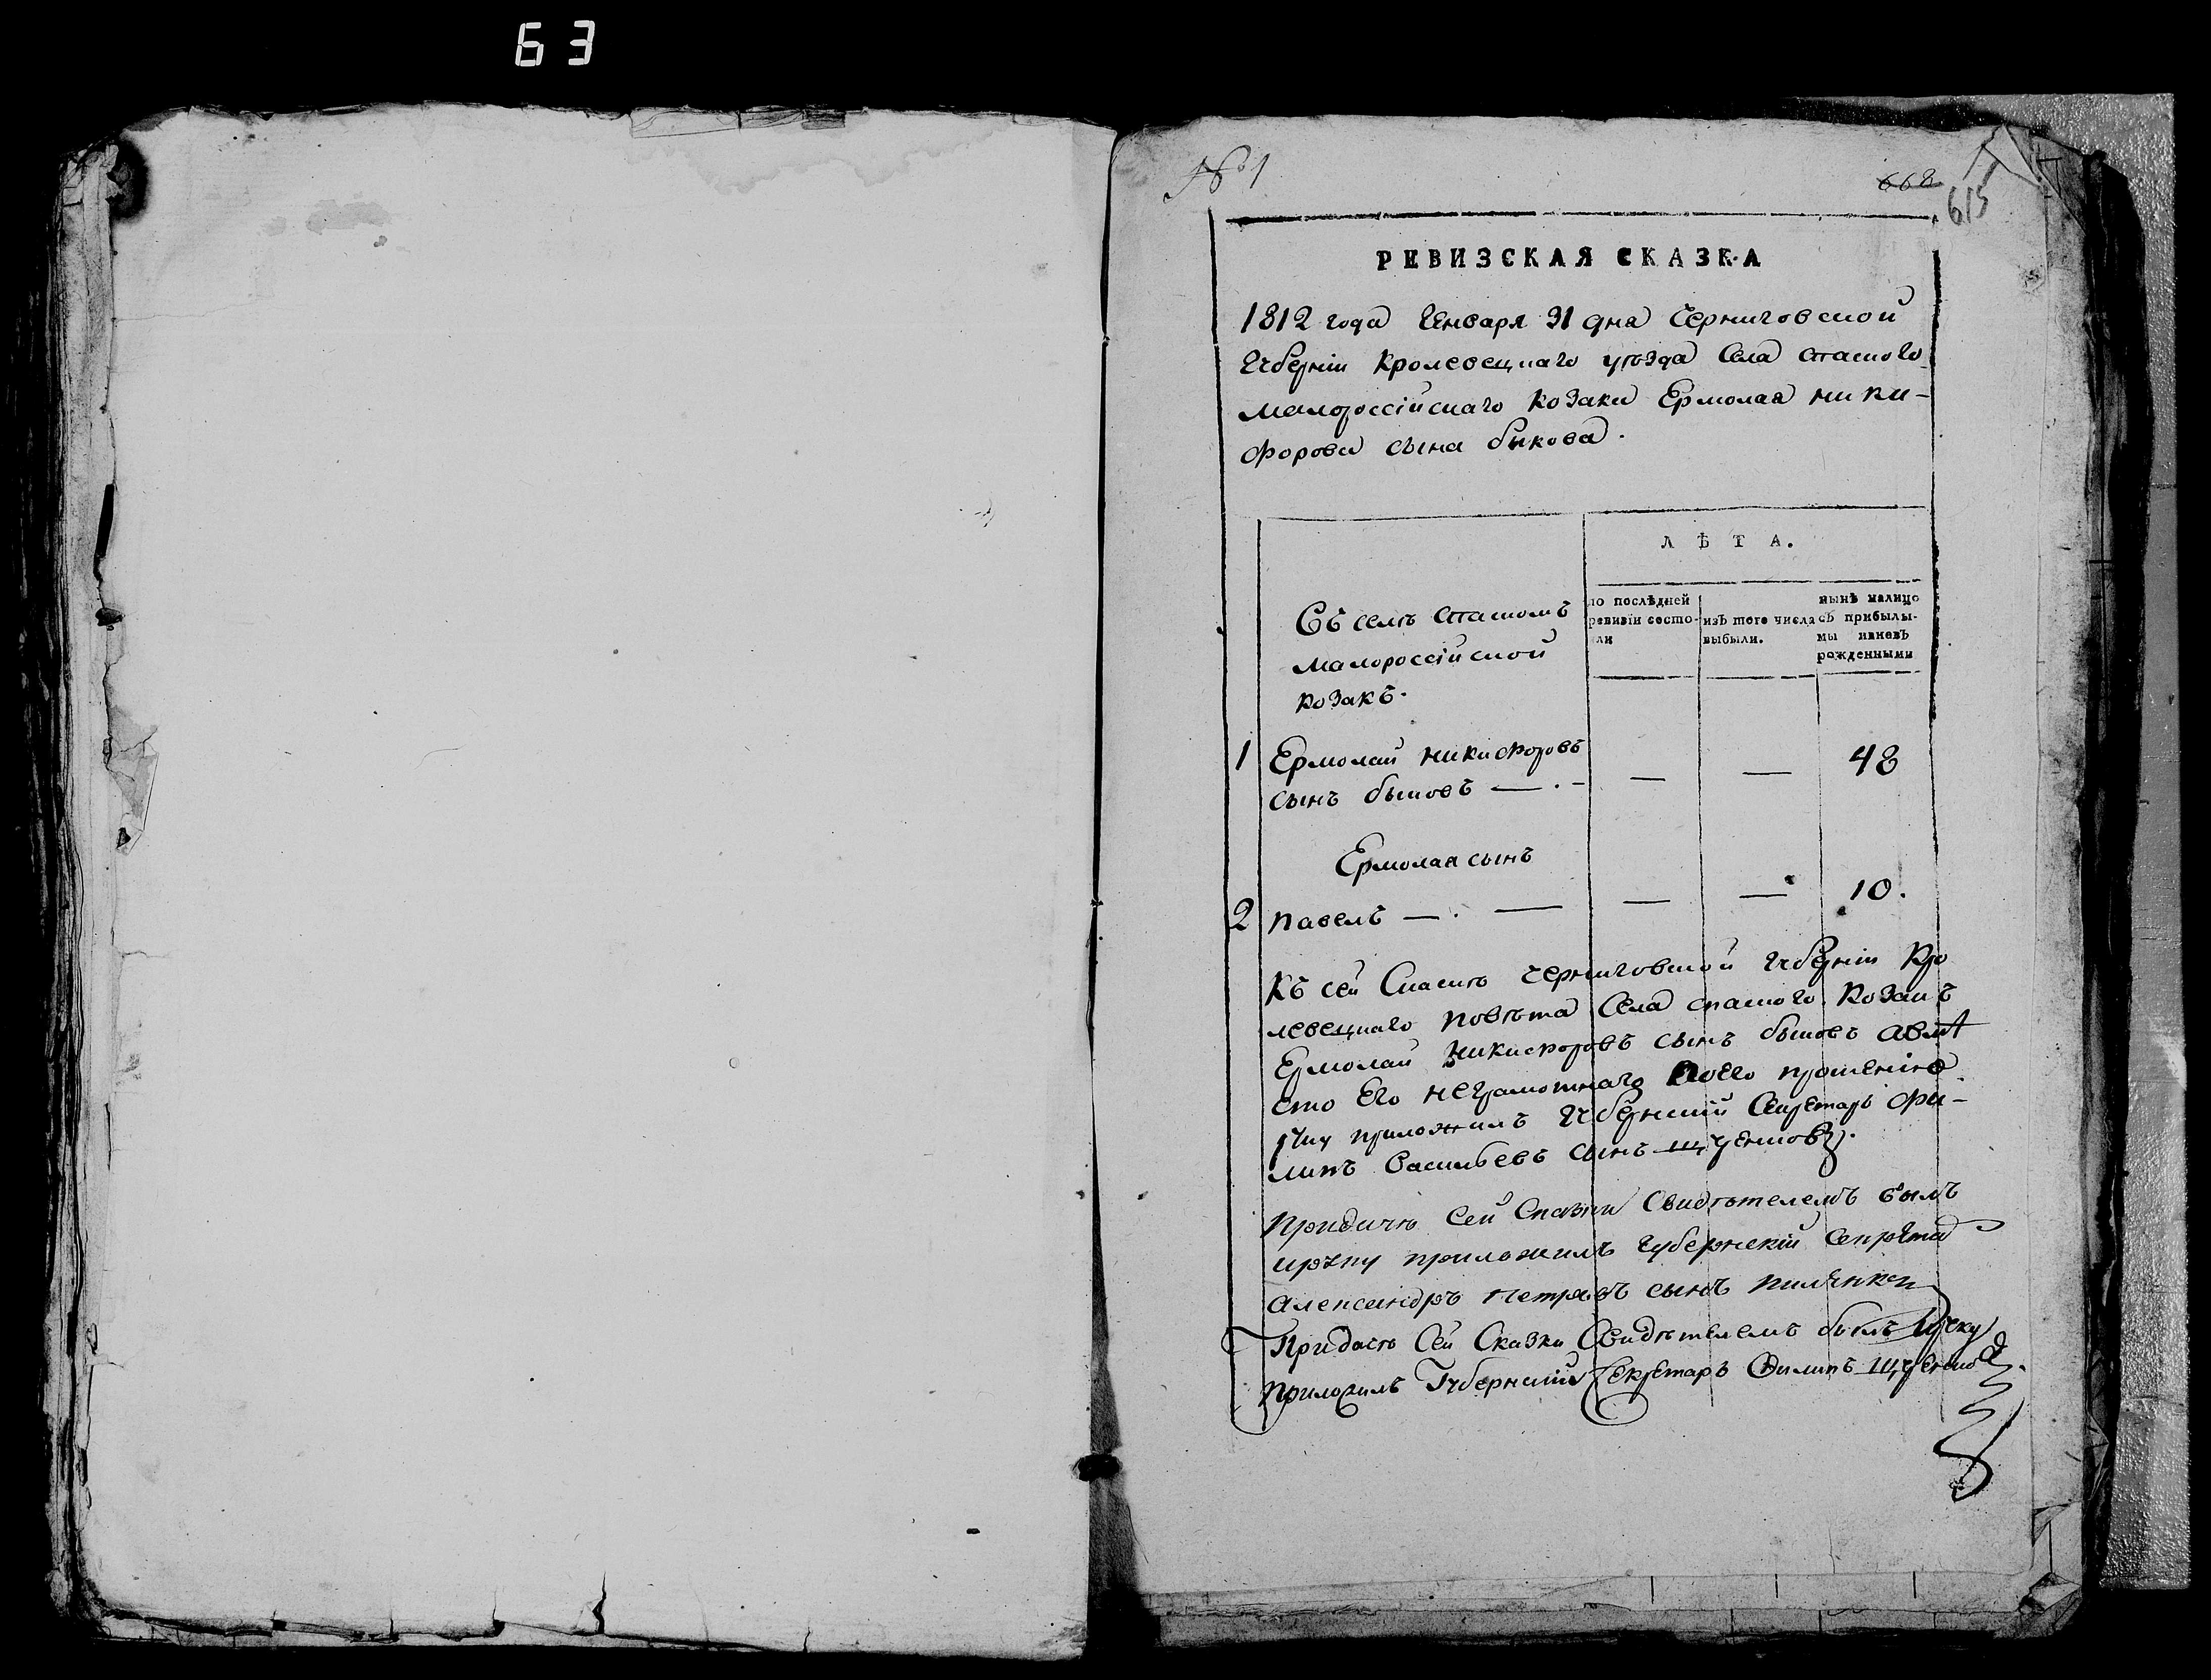 63
№ 1
668
615
РЕВИЗСКАЯ СКАЗКА
1812 года Генваря 31 дня Черниговской
Губерніи Кролевецкаго уѣзда Села спаского
малороссійскаго козака Ермолая ники-
форова сына быкова.
ЛѢТА.
по послѣдней ревизіи состо-ли
изъ того числа выбыли.
нынѣ налицо съ прибылы-мы ивновь рожденными
Въ селѣ спаскомъ
малороссійской
козакъ.
1 Ермолай никифоровъ
сынъ быковъ — — — 48
Ермолая сынъ
2 павелъ — — — — 10.
Къ сей Скаскѣ черниговской Губерніи Кро
левецкаго повѣта Села спаского козакъ
Ермолай Никифоровъ сынъ быковъ авмѣ
сто Его неграмотнаго поего прошенію
руку приложилъ Губернскій Секретарь Фи-
липъ Васильевъ сынъ
придачѣ сей Сказки Свидѣтелемъ былъ
ируку приложилъ Губернскій Секрета
Александръ петровъ сынъ
Придасѣ Сей Сказки Свидѣтелемъ былъИруку
приложилъ Губернскій Секретарь Филипъ